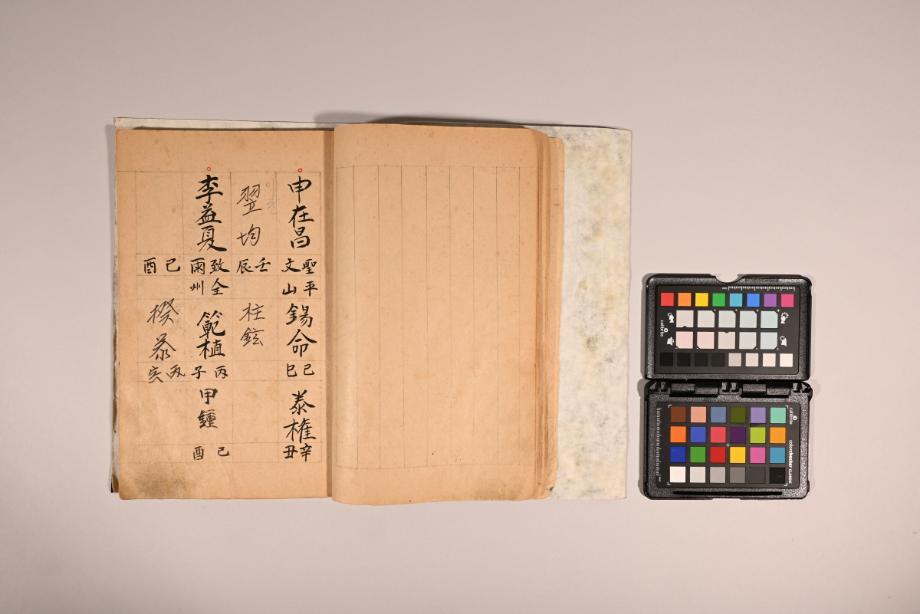 申在昌
聖平
文山
錫命
己巳
泰權
辛丑
翌均
壬辰
柱鉉
李益夏
致雨
全州
範植
丙子
甲鍾
己酉
己酉
揆泰
丙亥